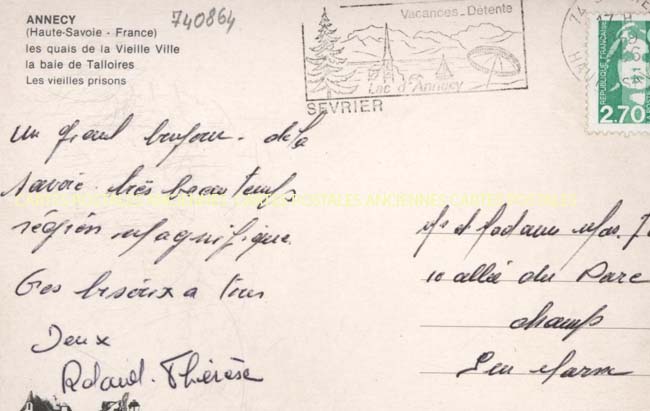 ANNECY
(Haute-Savoie - France)
les quais de la Vieille Ville
la baie de Talloires
Les vieilles prisons
740864
Vacances - Détente
Lac d'Annecy
SEVRIER
17 H
REPUBLIQUE FRANÇAISE
2,70
Un grand bonjour de la
Savoie. très beau temps
région magnifique.
Gos bisoux a tous
CARTES POSTALES ANCIENNES CARTES POSTALES ANCIENNES CARTES POSTALES
Roland - Thérèse
Mr et Madame Mas.
10 allée du Parc
champs
Sen Marne